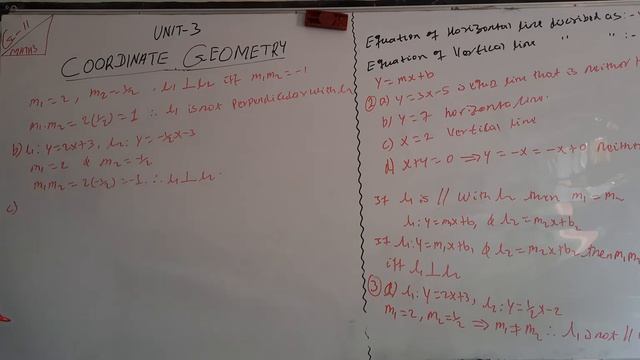 G-11
MATHS
UNIT-3
COORDINATE GEOMETRY
m₁=2, m₂=½, l₁⊥l₂ iff m₁m₂=-1
m₁.m₂=2(½)=1 ∴ l₁ is not perpendicular with l₂
b) l₁: y=2x+3, l₂: y=-½x-3
m₁=2 & m₂=-½
m₁m₂=2(-½)=-1 ∴ l₁⊥l₂.
c)
Equation of Horizontal line described as:-
Equation of Vertical line " " :-
y=mx+b
② a) y=3x-5 is line that is neither
b) y=7 horizontal line.
c) x=2 Vertical line
d) x+y=0 ⇒ y=-x=-x+0 neither
If l₁ is // with l₂ then m₁=m₂
l₁: y=m₁x+b₁ & l₂=m₂x+b₂
If l₁: y=m₁x+b₁ & l₂=m₂x+b₂ then m₁m
iff l₁⊥l₂
③ a) l₁: y=2x+3, l₂: y=½x-2
m₁=2, m₂=½ ⇒ m₁≠m₂ ∴ l₁ is not //